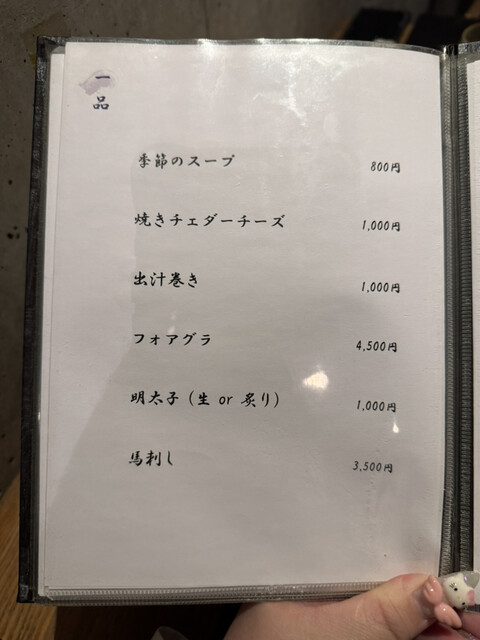 一品
季節のスープ 800円
焼きチェダーチーズ 1,000円
出汁巻き 1,000円
フォアグラ 4,500円
明太子（生 or 炙り） 1,000円
馬刺し 3,500円